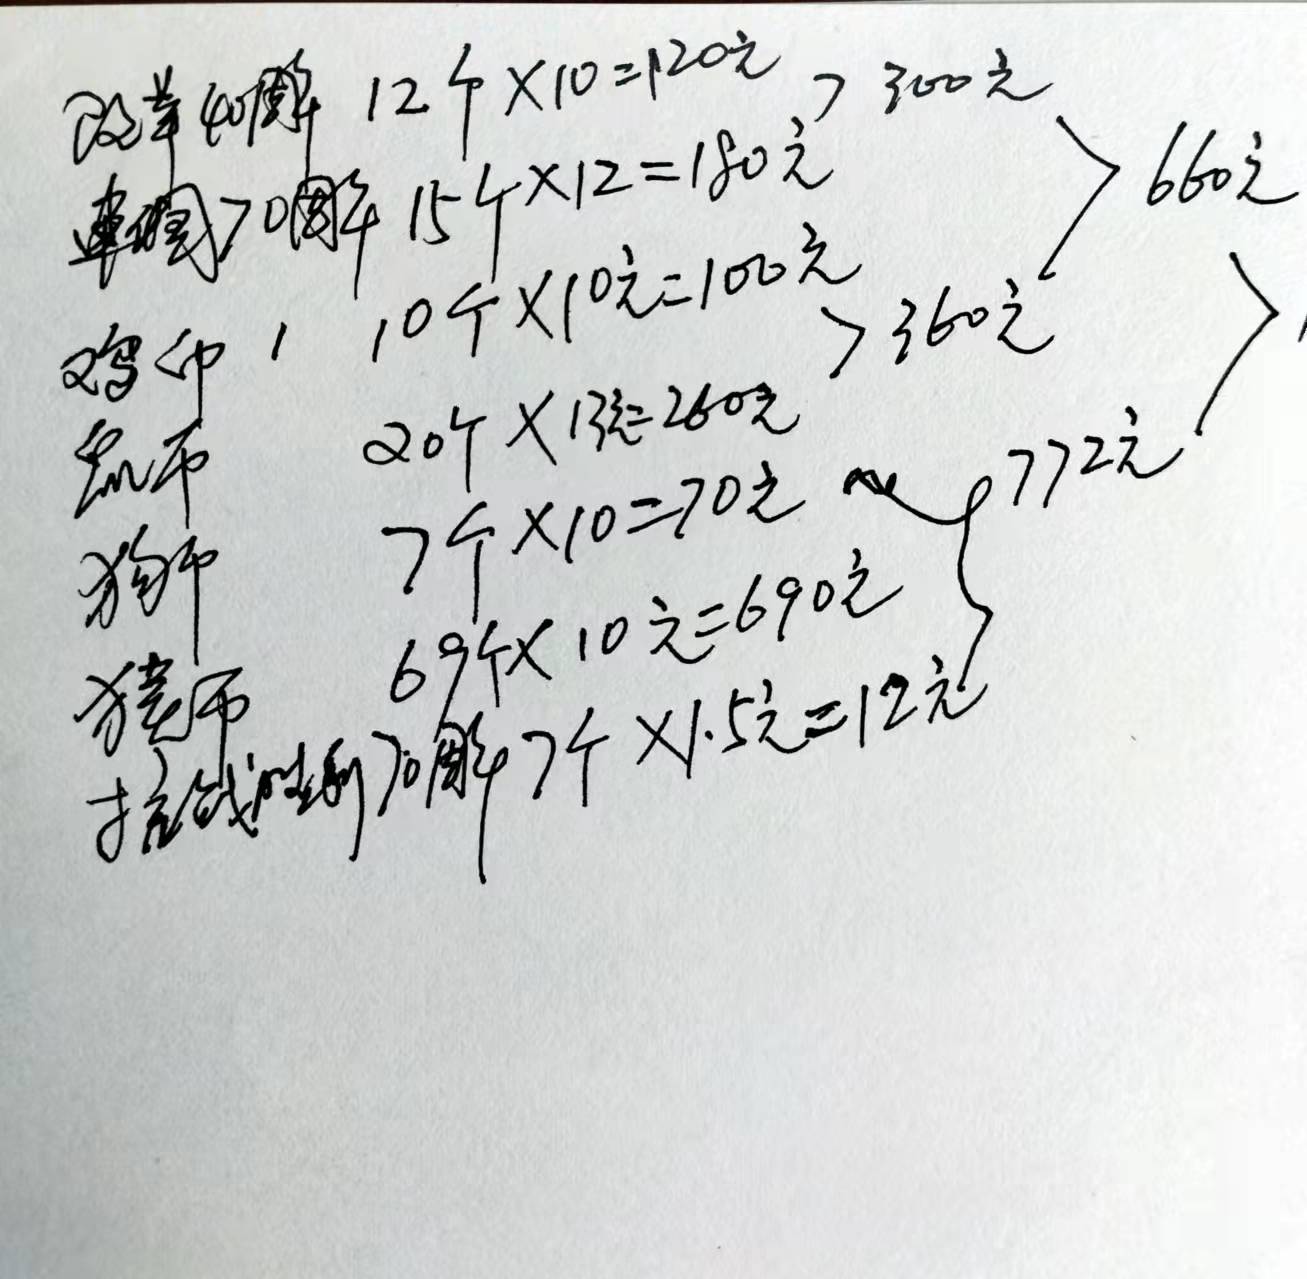 改革40周年 12个×10=120元 > 300元
建国70周年 15个×12=180元 > 660元
鸡币 10个×10元=100元 > 360元
鼠币 20个×13元=260元
狗币 7个×10=70元 772元
猪币 69个×10元=690元
抗战胜利70周年 7个×1.5元=12元